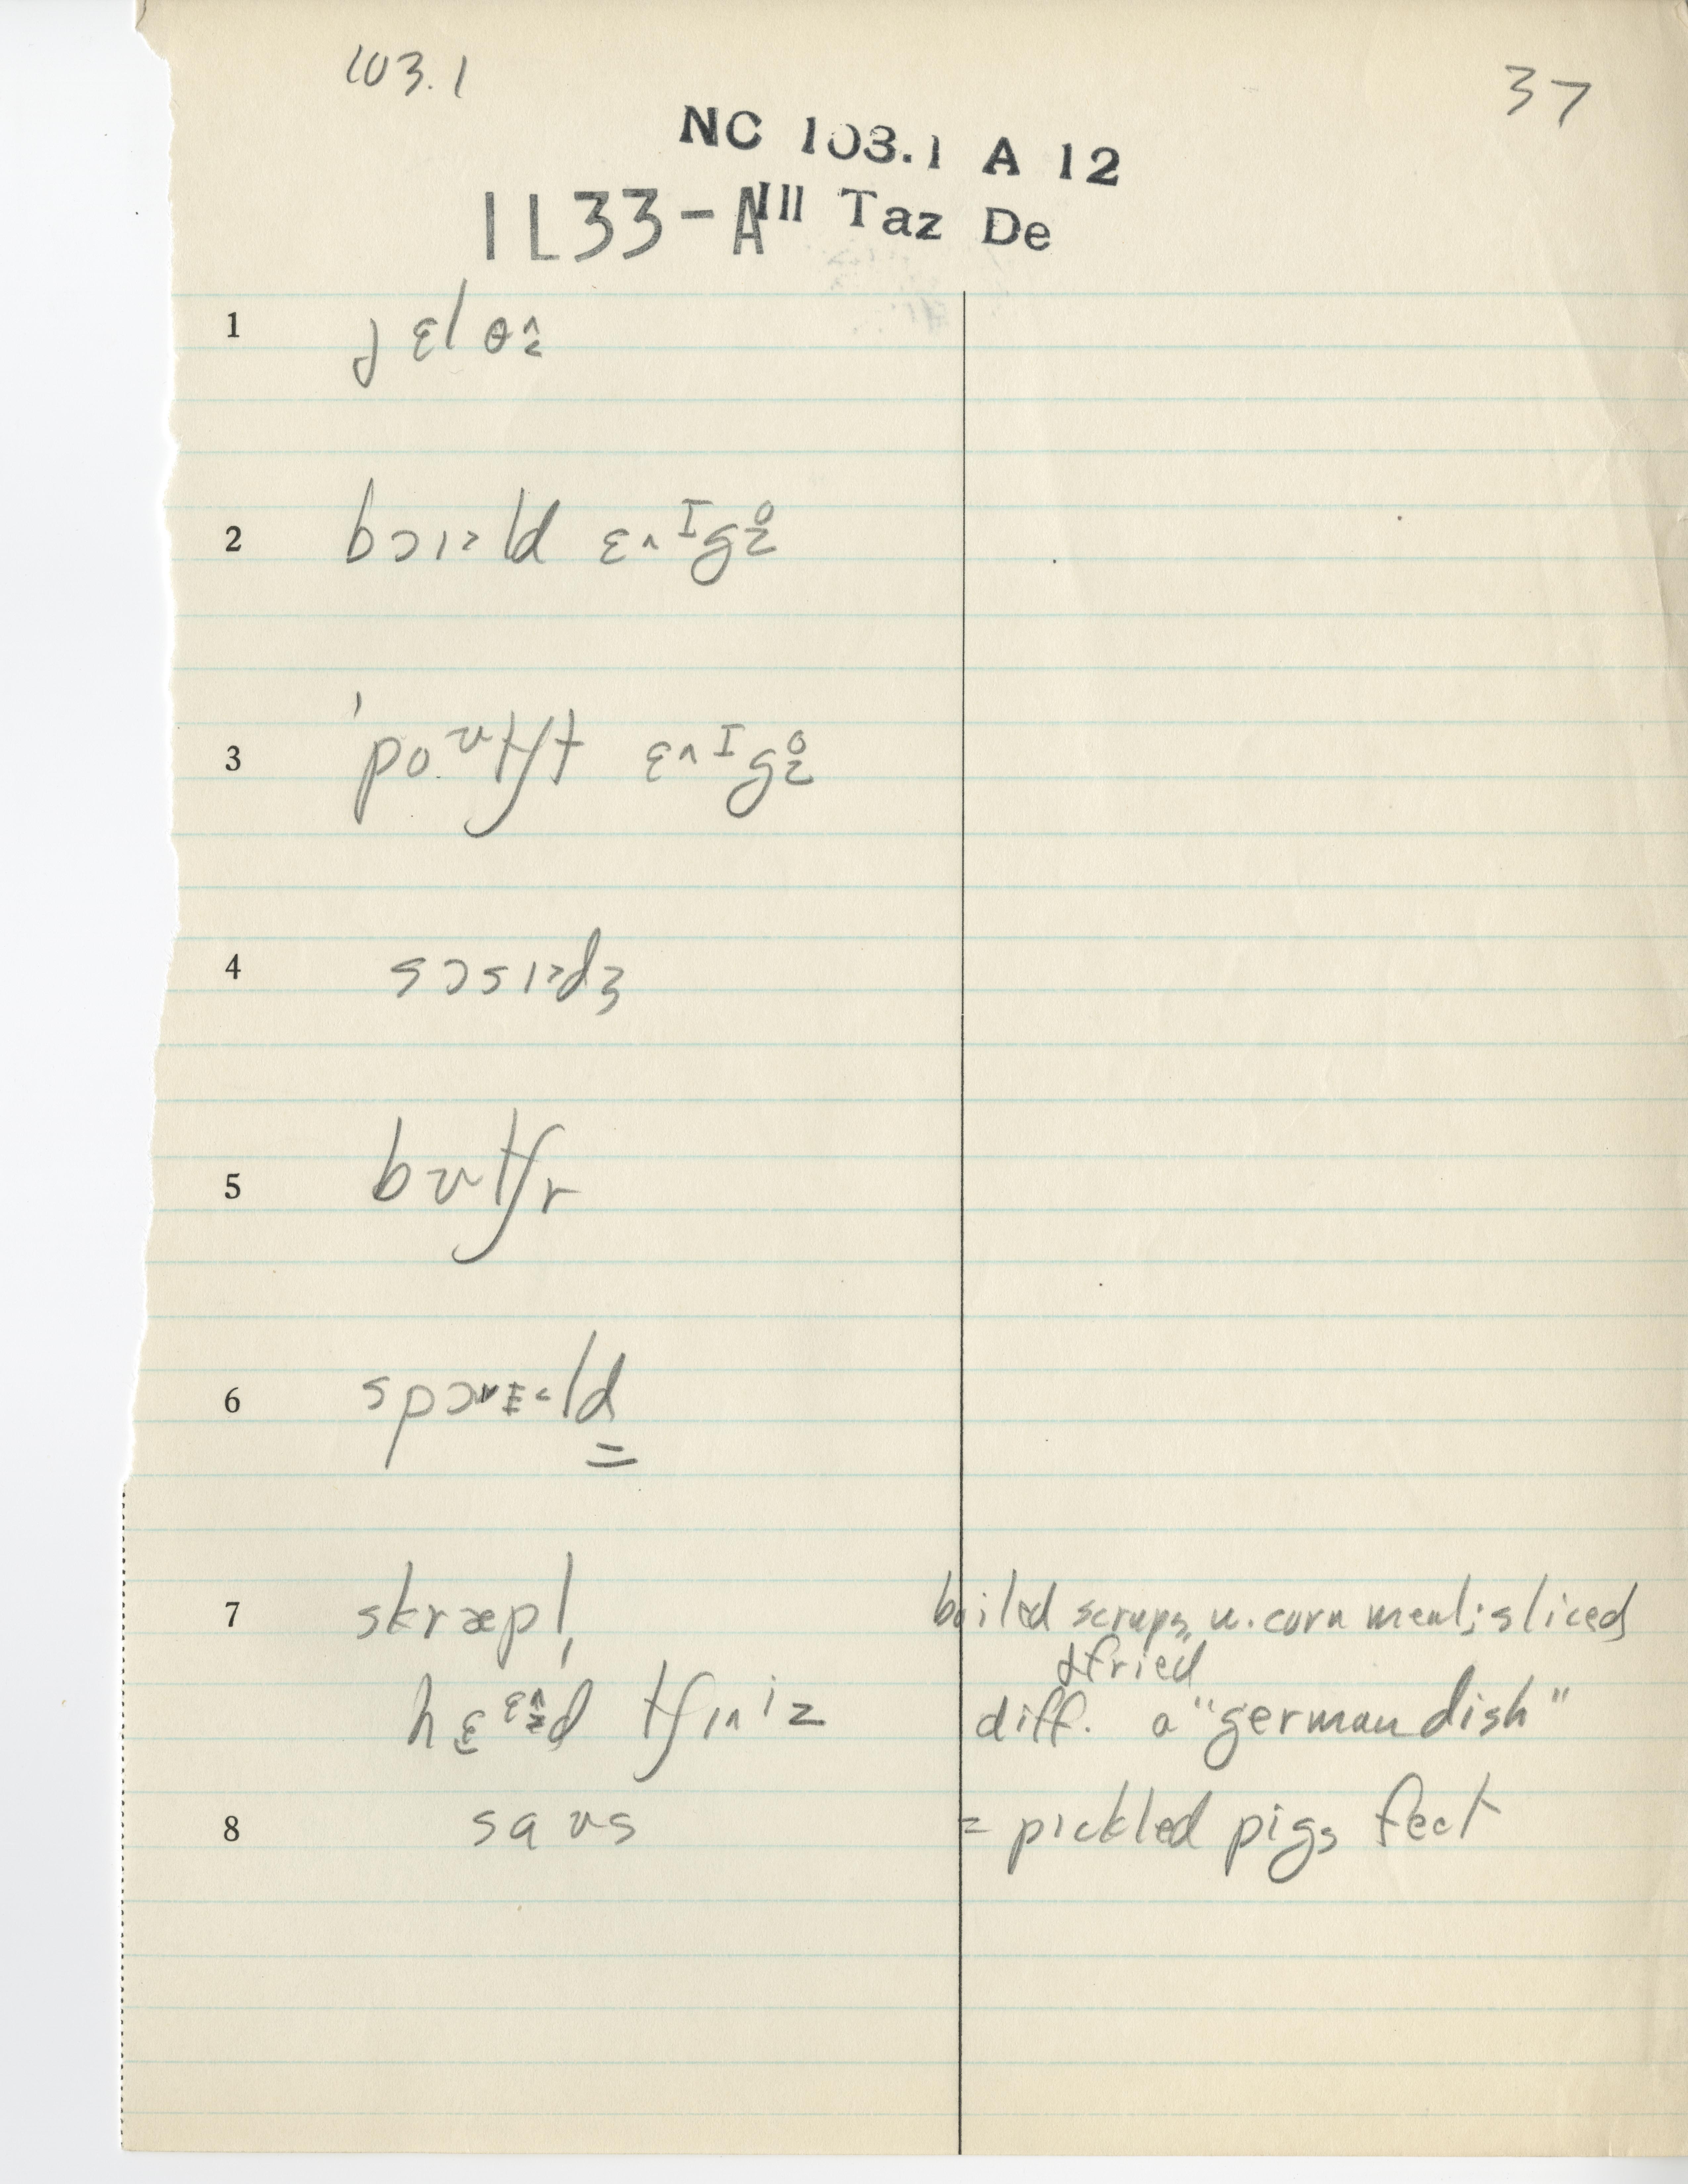 103.1
37
NC 103.1 A 12
IL33-A Ill Taz De
1 jɛlo
2 bɔɪld ɛɪgz
3 'poʊtʃt ɛɪgz
4 sɔsɪdʒ
5 bʊtʃr
6 spɔɪld
7 skræpl̩ boiled scraps w. corn meal; sliced
& fried
hɛɛd tʃiz diff. a "german dish"
8 saʊs = pickled pigs feet